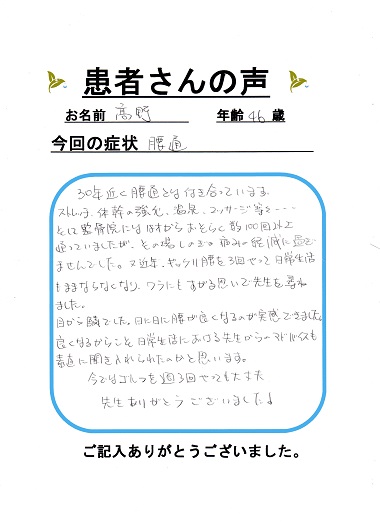 患者さんの声
お名前 高野 年齢 46 歳
今回の症状 腰通
30年近く腰通とは付き合っています。
ストレッチ、体幹の強化、温泉、マッサージ等々----
とは整骨院には おそらく数100回以上
通っていましたが、その場しのぎの痛みの軽減に過ぎ
ませんでした。又近年、ギックリ腰を3回やって日常生活
もままならなくなり、ワラにもすがる思いで先生を尋ね
ました。
目から鱗でした。日に日に腰が良くなるのが実感できました。
良くなるからこそ日常生活における先生からのアドバイスも
素直に聞き入れられたのかと思います。
今ではゴルフを週3回やっても大丈夫
先生ありがとうございました!
ご記入ありがとうございました。